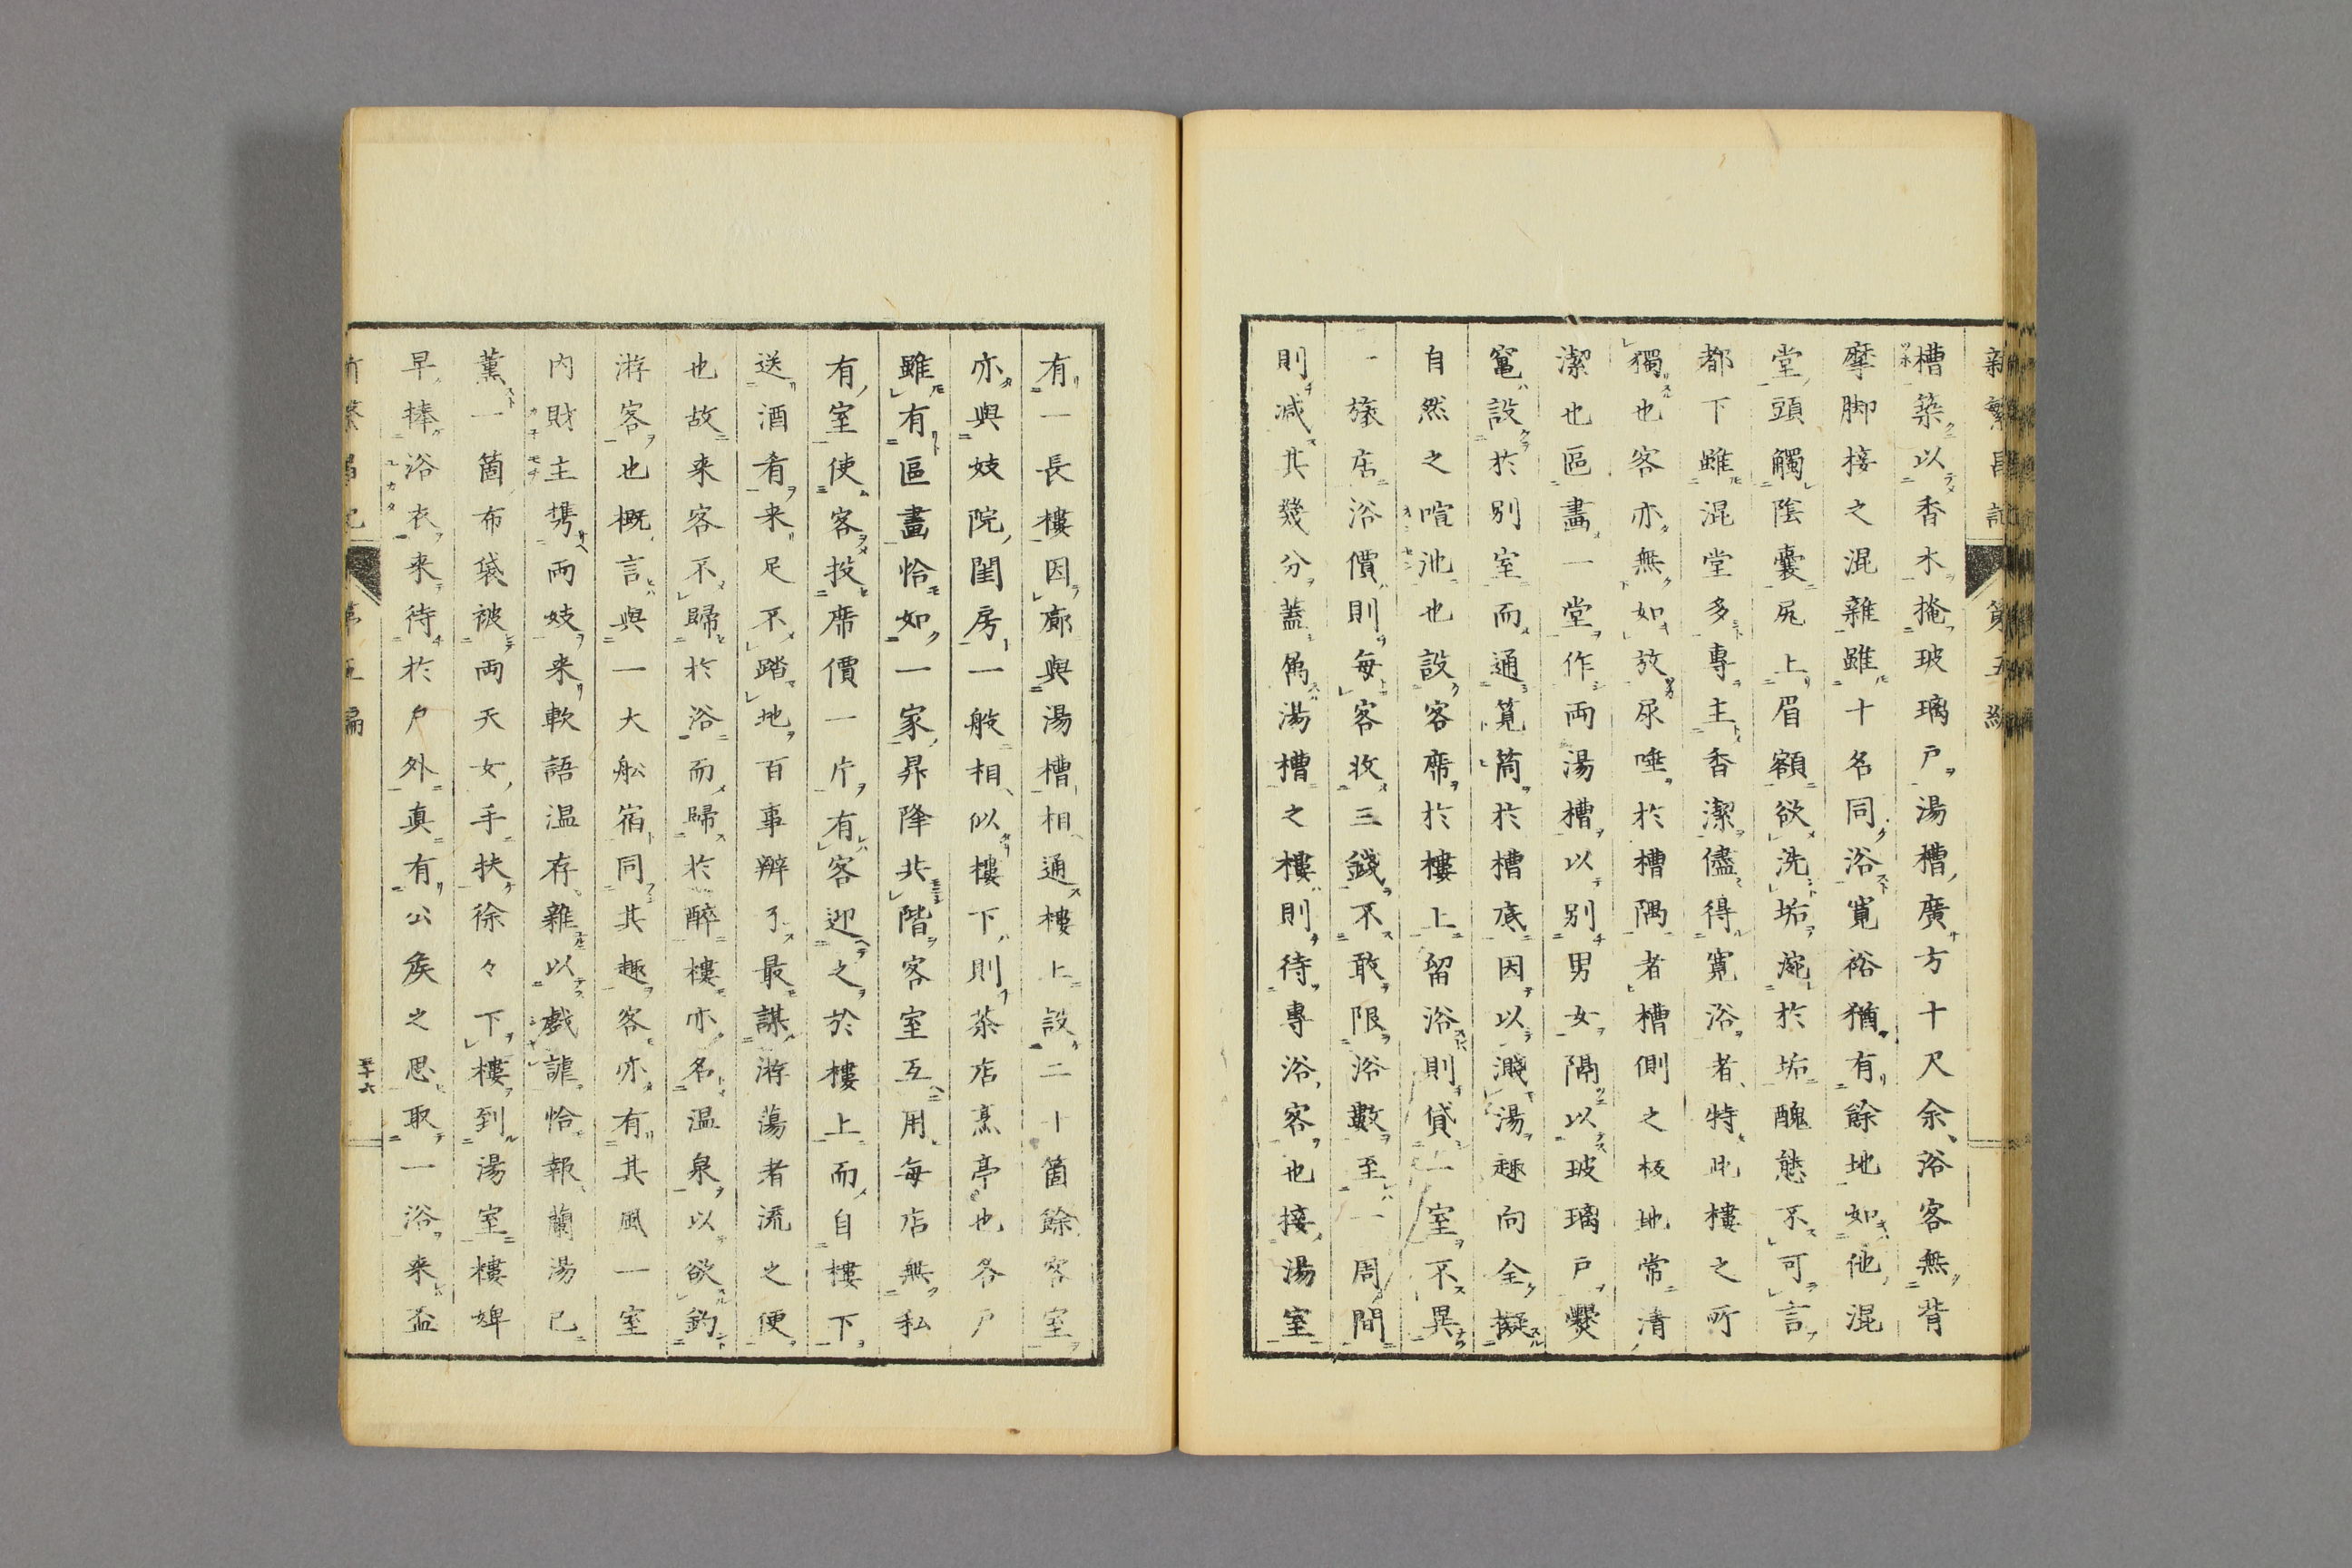 新繁昌記 第五編
槽築以香木掩玻璃戸湯槽廣方十尺余浴客無背
摩脚接之混雜雖十名同浴寛裕猶有餘地如他混
堂頭觸陰嚢尻上眉額欲洗垢涴於垢醜態不可言
都下雖混堂多專主香潔儘得寛浴者特此樓之所
獨也客亦無如放尿唾於槽隅者槽側之板地常清
潔也區畫一堂作両湯槽以別男女隔以玻璃戸爨
竃設於別室而通筧筒於槽底因以濺湯趣向全擬
自然之喧池也設客席於樓上留浴則貸一室不異
一旅店浴價則毎客收三錢不敢限浴數至一周間
則減其幾分蓋為湯槽之樓則待專浴客也接湯室
有一長樓因廊與湯槽相通樓上設二十箇餘客室
亦與妓院閨房一般相似樓下則茶店烹亭也各戸
雖有區畫恰如一家昇降共階客室互用毎店無私
有室使客投席價一片有客迎之於樓上而自樓下
送酒肴来足不踏地百事辨了最謀游蕩者流之便
也故来客不歸於浴而歸於醉樓亦名温泉以欲釣
游客也概言與一大舩宿同其趣客亦有其風一室
内財主携両妓来軟語温存雜以戲謔恰報蘭湯已
薫一箇布袋被両天女手扶徐々下樓到湯室樓婢
早捧浴衣来待於戸外真有公矦之思取一浴来盃
新繁昌記 第五編 三十六